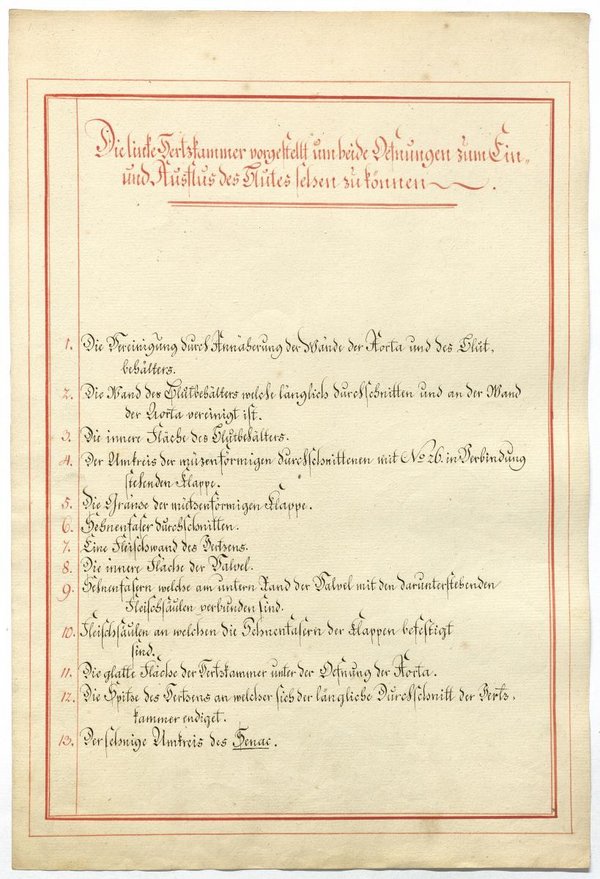 Die lincke Hertzkammer vorgestellt um beide Oefnungen zum Ein-
und Ausflus des Blutes sehen zu können.
1. Die Vereinigung durch Annäherung der Wände der Aorta und des Blut-
behälters.
2. Die Wand des Blutbehälters welche länglich durchschnitten und an der Wand
der Aorta vereinigt ist.
3. Die innere Fläche des Blutbehälters.
4. Der Umkreis der müzenförmigen durchschnittenen mit No 26. in Verbindung
stehenden Klappe.
5. Die Gränze der mützenförmigen Klappe.
6. Sehnenfaser durchschnitten.
7. Eine Fleischwand des Hertzens.
8. Die innere Fläche der Valvel.
9. Sehnenfasern welche am untern Rand der Valvel mit den darunterstehenden
Fleischsäulen verbunden sind.
10. Fleischsäulen an welchen die Sehnenfasern der Klappen befestigt
sind.
11. Die glatte Fläche der Hertzkammer unter der Oefnung der Aorta.
12. Die Spitze des Hertzens an welcher sich der längliche Durchschnitt der Hertz-
kammer endiget.
13. Der sehnige Umkreis des Senac.